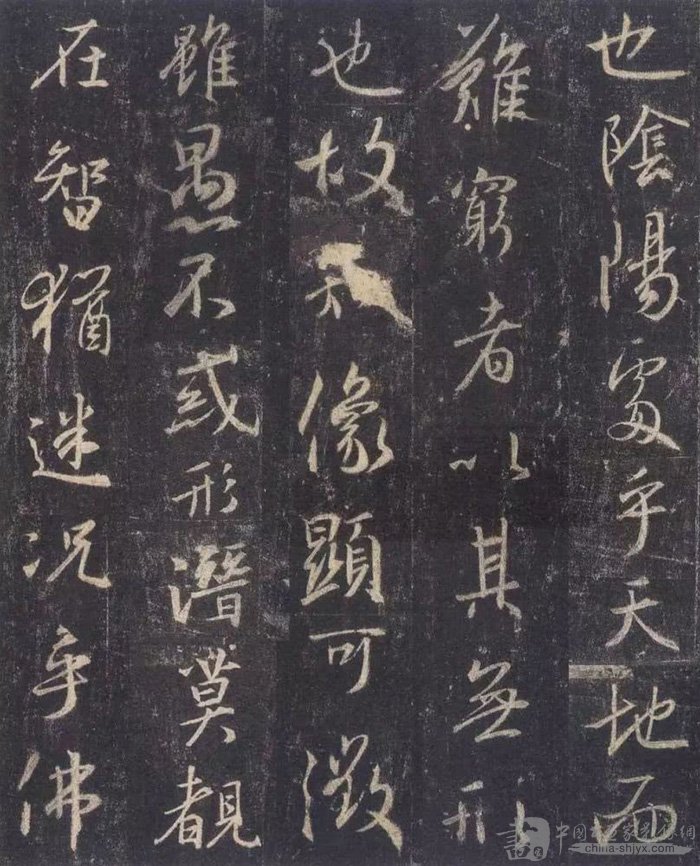 也陰陽處乎天地而
難窮者以其無形
也故知像顯可徵
雖愚不惑形潛莫覩
在智猶迷況乎佛
china-shjyx.com